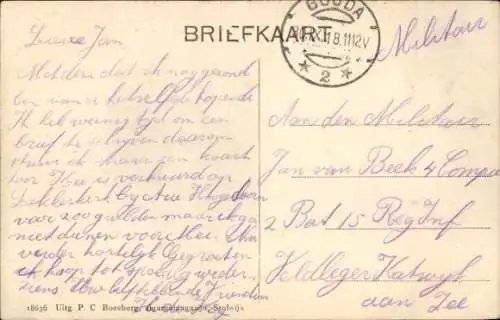 BRIEFKAART
GOUDA
8.11 12V
2
Militair
Lieve Jan
Met deze dat ik nog gezond
ben van u hetzelfde hopende
Ik heb weinig tijd om een
brief te schrijven daarom
stuur ik maar een kaart
voor Hee is verhuurd op
Lekkerkerk by Arie
voor 200 gulden maar ik ga
niet dienen voor Mee. Nu
verder hartelijk Gegroeten
ik hoop tot spoedig weder
ziens Uw liefhebbende Vriendin
Aan den Militair
Jan van Beek 4 Comp
2 Bat 15 Reg Inf
Veldleger Katwyk
aan Zee
18656 Uitg. P. C. Boesberg, Stolwijk